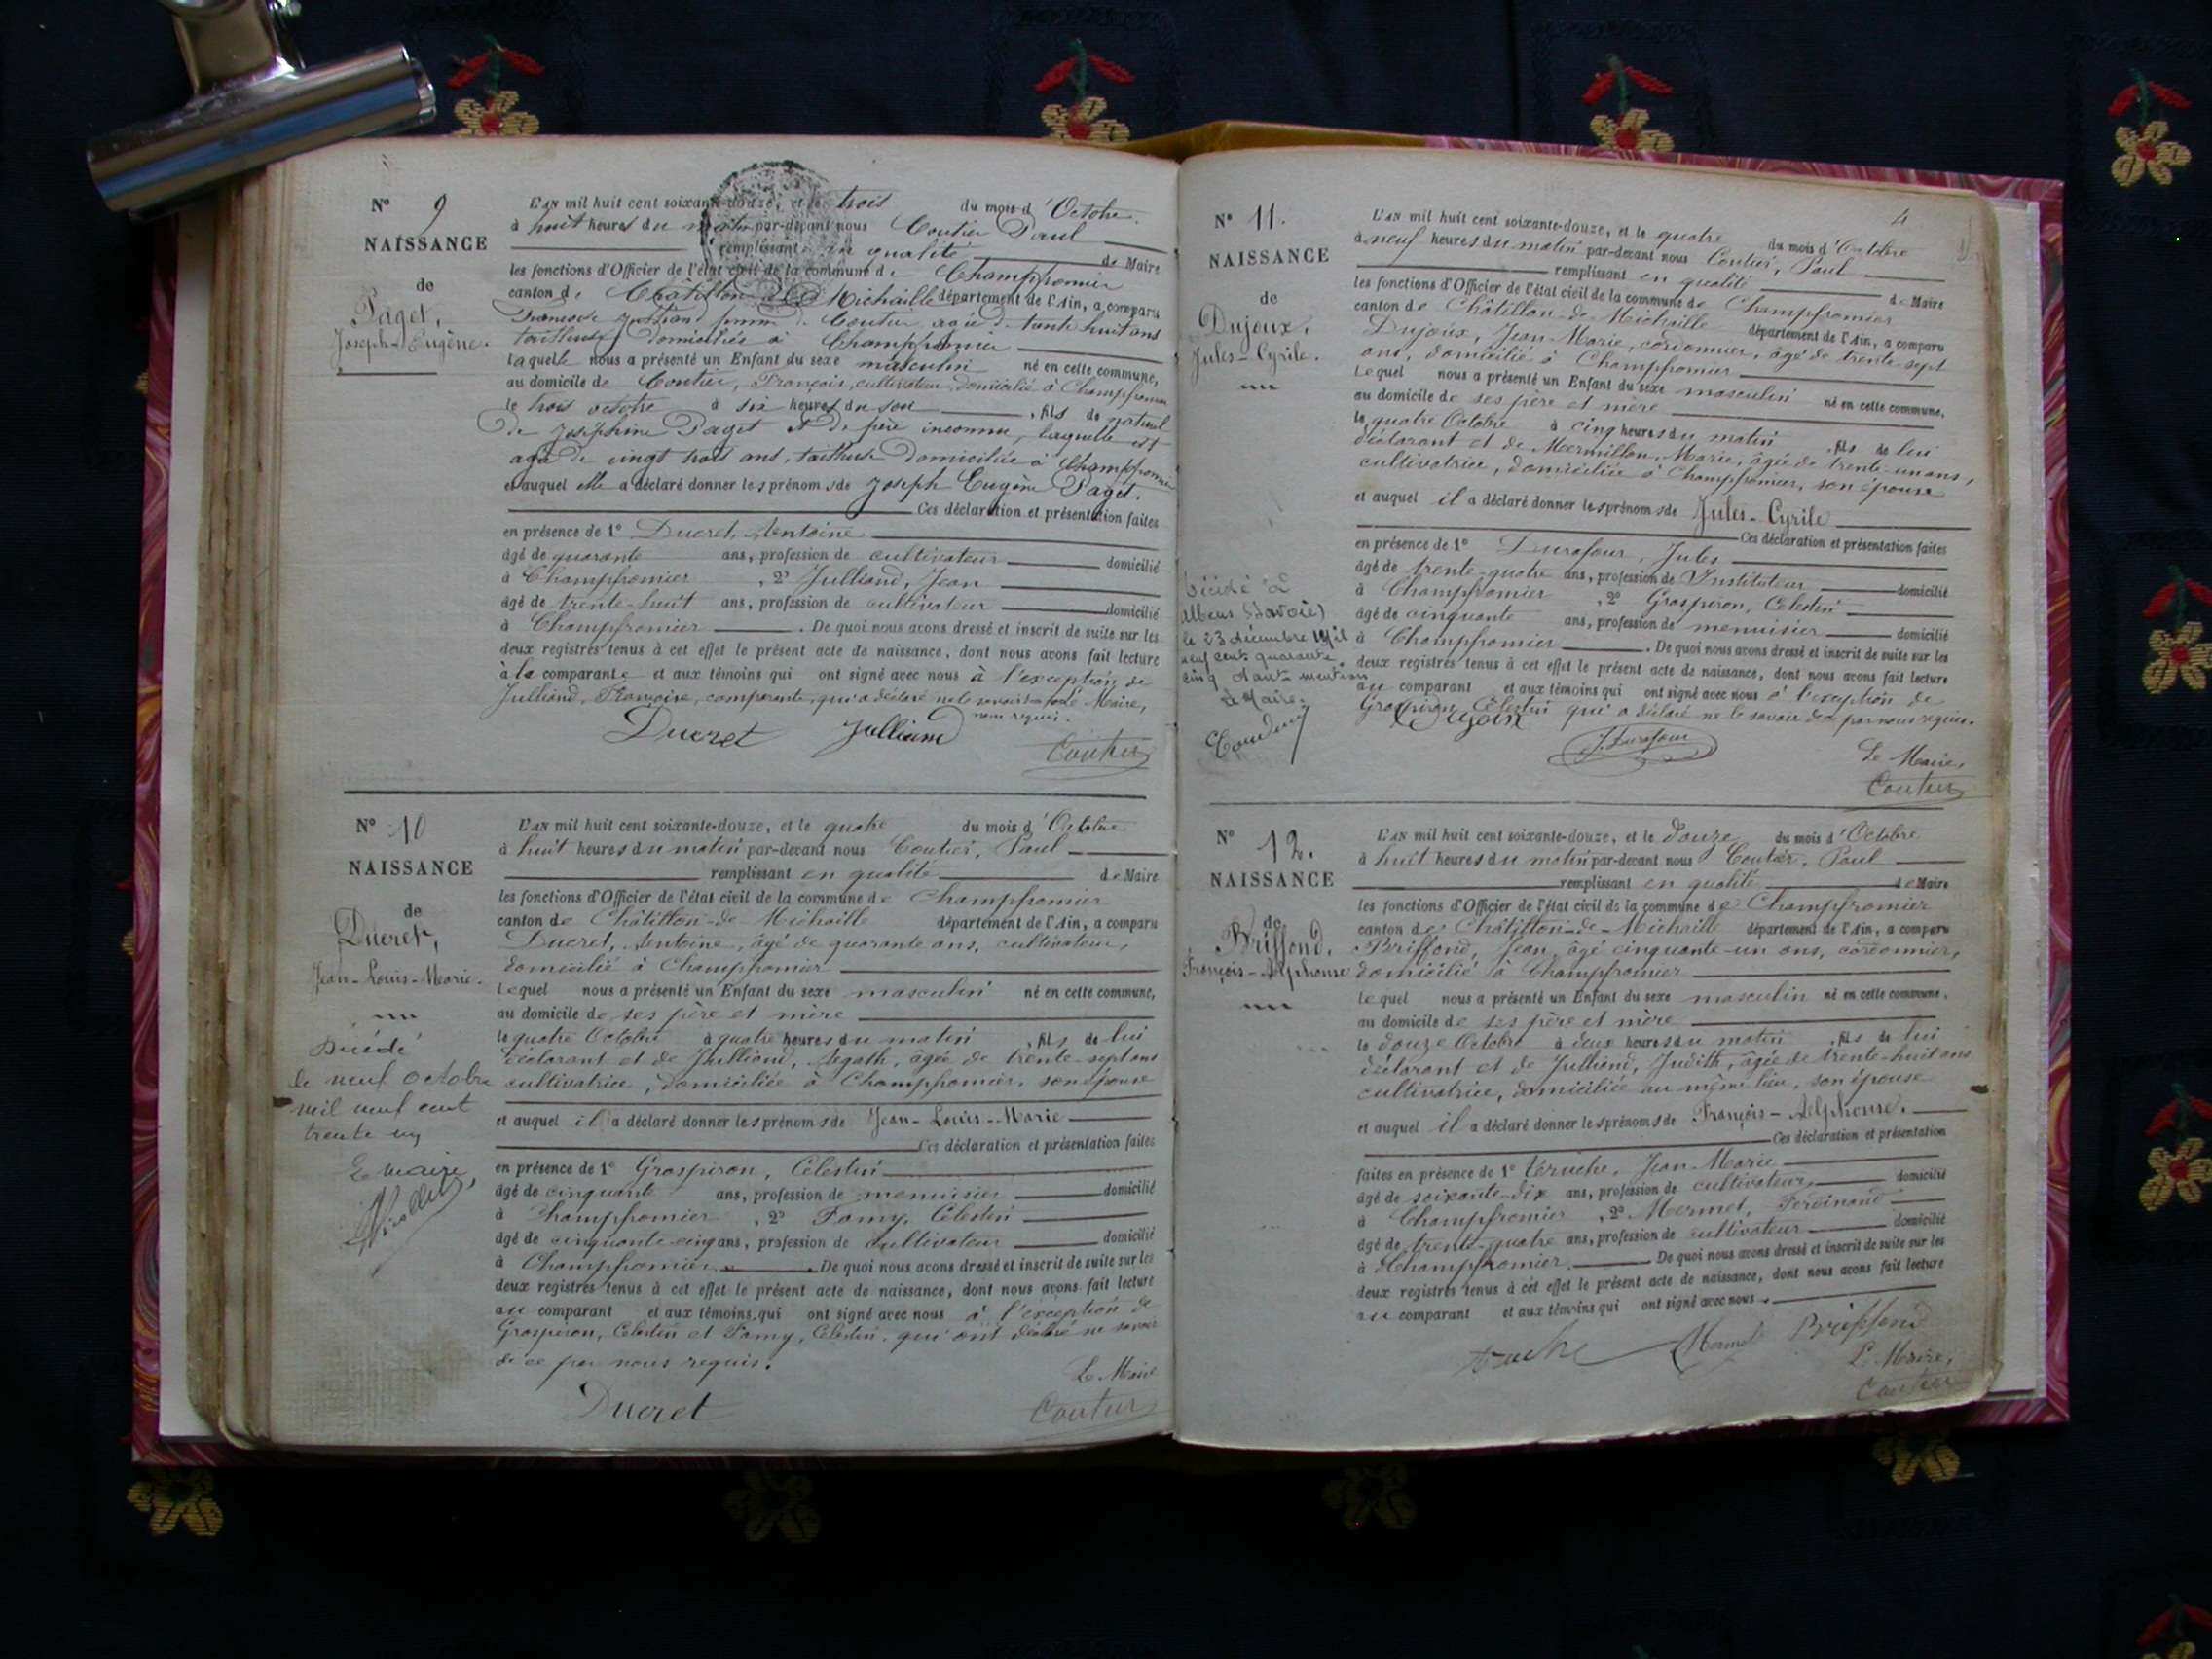 N° 9
NAISSANCE
de
Paget,
Joseph-Eugène.
L'AN mil huit cent soixante-douze, et le trois du mois d'Octobre
à huit heures du matin par-devant nous Coutier Paul
remplissant en qualité de Maire
les fonctions d'Officier de l'état civil de la commune de Champfromier
canton de Châtillon de Michaille département de l'Ain, a comparu
Julliand femme de Coutier agée de trente huit ans
tailleuse domiciliée à Champfromier
laquelle nous a présenté un Enfant du sexe masculin né en cette commune,
au domicile de Coutier, François, cultivateur domicilié à Champfromier
le trois octobre à six heures du soir, fils de naturel
de Joséphine Paget et de père inconnu, laquelle est
agée de vingt trois ans, tailleuse domiciliée à Champfromier
et auquel elle a déclaré donner les prénoms de Joseph Eugène Paget.
Ces déclaration et présentation faites
en présence de 1° Ducret, Antoine
âgé de quarante ans, profession de cultivateur domicilié
à Champfromier, 2° Julliand, Jean
âgé de trente-huit ans, profession de cultivateur domicilié
à Champfromier. De quoi nous avons dressé et inscrit de suite sur les
deux registres tenus à cet effet le présent acte de naissance, dont nous avons fait lecture
à la comparante et aux témoins qui ont signé avec nous à l'exception de
Julliand, Françoise, comparante, qui a déclaré ne le savoir Maire,
nous requis.
Ducret Julliand
Coutier
N° 10
NAISSANCE
de
Ducret,
Jean-Louis-Marie.
Décédé
le neuf octobre
mil neuf cent
trente un
Le maire
L'AN mil huit cent soixante-douze, et le quatre du mois d'Octobre
à huit heures du matin par-devant nous Coutier, Paul
remplissant en qualité de Maire
les fonctions d'Officier de l'état civil de la commune de Champfromier
canton de Châtillon-de-Michaille département de l'Ain, a comparu
Ducret, Antoine, âgé de quarante ans, cultivateur,
domicilié à Champfromier
lequel nous a présenté un Enfant du sexe masculin né en cette commune,
au domicile de ses père et mère
le quatre Octobre à quatre heures du matin, fils de lui
déclarant et de Julliand, Agath, âgée de trente-sept ans
cultivatrice, domiciliée à Champfromier, son épouse
et auquel il a déclaré donner les prénoms de Jean-Louis-Marie
Ces déclaration et présentation faites
en présence de 1° Grospiron, Célestin
âgé de cinquante ans, profession de menuisier domicilié
à Champfromier, 2° Famy, Célestin
âgé de cinquante-cinq ans, profession de cultivateur domicilié
à Champfromier. De quoi nous avons dressé et inscrit de suite sur les
deux registres tenus à cet effet le présent acte de naissance, dont nous avons fait lecture
au comparant et aux témoins qui ont signé avec nous à l'exception de
Grospiron, Célestin et Famy, Célestin, qui ont déclaré ne savoir
de ce par nous requis.
Le Maire
Ducret Coutier
4
N° 11.
NAISSANCE
de
Dujoux,
Jules-Cyrile.
Décédé à
Albens (Savoie)
le 23 décembre mil
neuf cent quarante
cinq dont mention
Le Maire
L'AN mil huit cent soixante-douze, et le quatre du mois d'Octobre
à neuf heures du matin par-devant nous Coutier, Paul
remplissant en qualité de Maire
les fonctions d'Officier de l'état civil de la commune de Champfromier
canton de Châtillon-de-Michaille département de l'Ain, a comparu
Dujoux, Jean-Marie, cordonnier, âgé de trente-sept
ans, domicilié à Champfromier
lequel nous a présenté un Enfant du sexe masculin né en cette commune,
au domicile de ses père et mère
le quatre Octobre à cinq heures du matin, fils de lui
déclarant et de Mermillon, Marie, âgée de trente-un ans,
cultivatrice, domiciliée à Champfromier, son épouse
et auquel il a déclaré donner les prénoms de Jules-Cyrile
Ces déclaration et présentation faites
en présence de 1° Durafour, Jules
âgé de trente-quatre ans, profession de Instituteur domicilié
à Champfromier, 2° Grospiron, Célestin
âgé de cinquante ans, profession de menuisier domicilié
à Champfromier. De quoi nous avons dressé et inscrit de suite sur les
deux registres tenus à cet effet le présent acte de naissance, dont nous avons fait lecture
au comparant et aux témoins qui ont signé avec nous à l'exception de
Grospiron, Célestin qui a déclaré ne le savoir de ce par nous requis.
Dujoux
J. Durafour
Le Maire,
Coutier
N° 12.
NAISSANCE
de
Briffond,
François-Alphonse
L'AN mil huit cent soixante-douze, et le douze du mois d'Octobre
à huit heures du matin par-devant nous Coutier, Paul
remplissant en qualité de Maire
les fonctions d'Officier de l'état civil de la commune de Champfromier
canton de Châtillon-de-Michaille département de l'Ain, a comparu
Briffond, Jean, âgé cinquante-un ans, cordonnier,
domicilié à Champfromier
lequel nous a présenté un Enfant du sexe masculin né en cette commune,
au domicile de ses père et mère
le douze Octobre à deux heures du matin, fils de lui
déclarant et de Julliand, Judith, âgée de trente-huit ans
cultivatrice, domiciliée au même lieu, son épouse
et auquel il a déclaré donner les prénoms de François-Alphonse.
Ces déclaration et présentation
faites en présence de 1° Truche, Jean-Marie
âgé de soixante-dix ans, profession de cultivateur domicilié
à Champfromier, 2° Mermet, Ferdinand
âgé de trente-quatre ans, profession de cultivateur domicilié
à Champfromier. De quoi nous avons dressé et inscrit de suite sur les
deux registres tenus à cet effet le présent acte de naissance, dont nous avons fait lecture
au comparant et aux témoins qui ont signé avec nous.
Truche Mermet Briffond
Le Maire,
Coutier